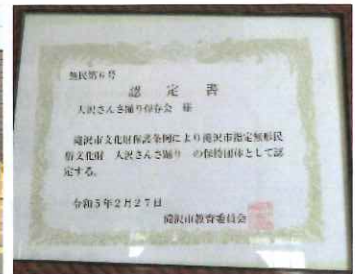 無民第6号
認定書
大沢さんさ踊り保存会 様
滝沢市文化財保護条例により滝沢市指定無形民
俗文化財 大沢さんさ踊り の保持団体として認
定する。
令和5年2月27日
滝沢市教育委員会